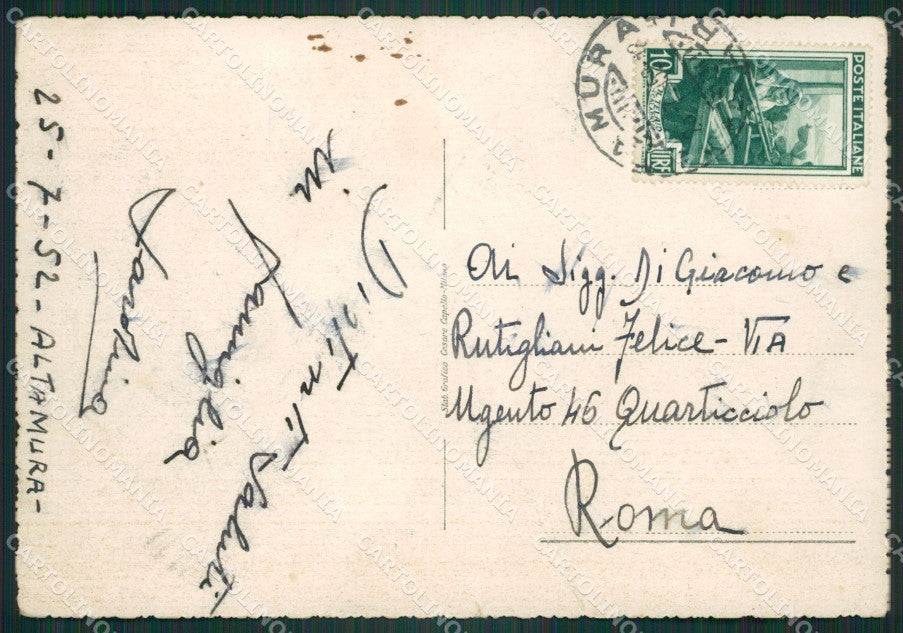 25-7-52-ALTAMURA-
Distinti saluti
in famiglia
POSTE ITALIANE
10
LIRE
Ai Sigg. Di Giacomo e
Rutigliani Felice - VIA
Ugento 46 Quarticciolo
Roma
Stab. Grafico Cesare Capello - Milano
CARTOLINOMANIA